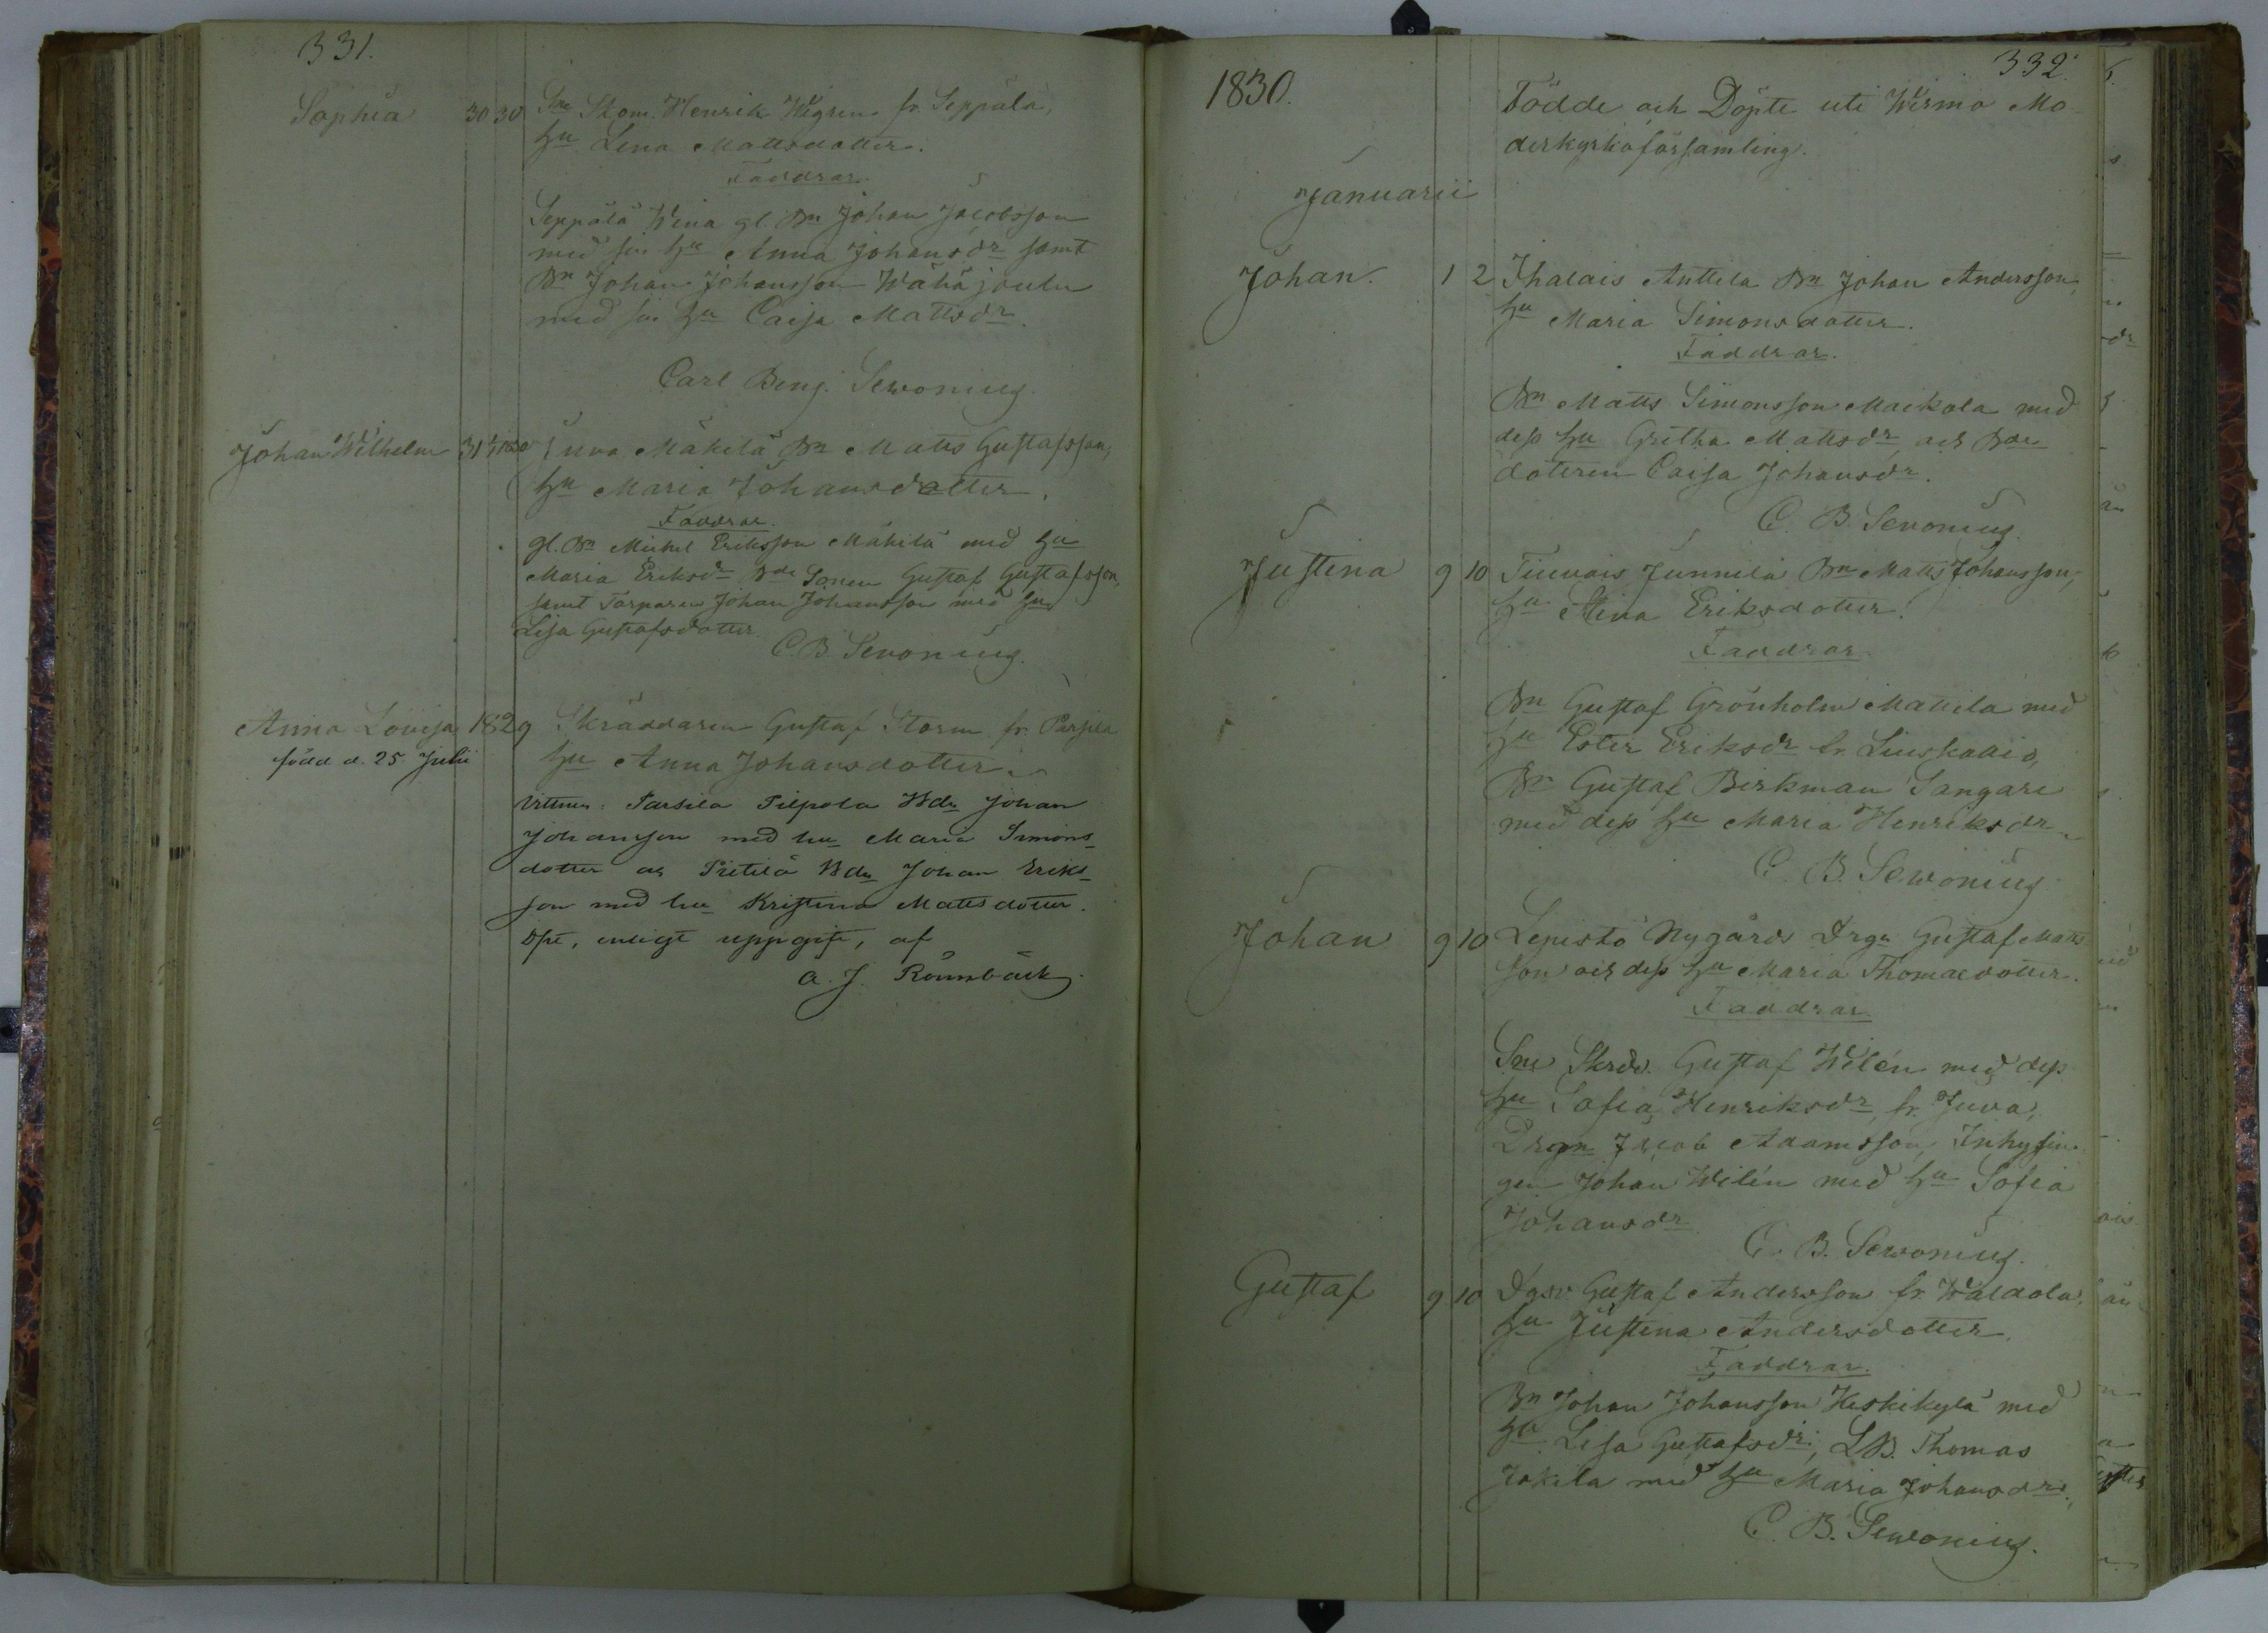 331.
Sophia 30 30 Sne Skom. Henrik Wigren fr. Seppälä,
hu Lena Mattsdotter.
Faddrar.
Seppälä Wena gl. Bn Johan Jacobsson
med sin hu Anna Johansdr samt
Bn Johan Johansson Wähäjoulu
med sin hu Caisa Mattsdr.
Carl Benj. Sewonius.
Johan Wilhelm 31 1/1 1830 Juva Mäkelä Bn Matts Gustafsson,
hu Maria Johansdotter.
Faddrar.
gl. Bn Michel Eriksson Mäkilä med hu
Maria Eriksdr Bde Sonen Gustaf Gustafsson,
samt Torparen Johan Johansson med hu
Lisa Gustafsdotter.
C. B. Sevonius.
Anna Lovisa 1829 Skräddaren Gustaf Storm fr. Parsila
född d. 25 Julii hu Anna Johansdotter.
Vittnen: Parsila Pilpola Bdn Johan
Johansson med hu Maria Simons-
dotter och Pietilä Bdn Johan Eriks-
son med hu Kristina Mattsdotter.
Döpt, enligt uppgift, af
A. J. Rönnbäck.
332.
1830. Födde och Döpte uti Wirmo Mo-
derkyrkoförsamling.
Januarii
Johan. 1 2 Ihalais Anttila Bn Johan Andersson,
hu Maria Simonsdotter.
Faddrar.
Bn Matts Simonsson Maikola med
dess hu Gretha Mattsdr, och Bde
dotteren Caisa Johansdr.
C. B. Sevonius.
Justina 9 10 Tiuvais Junnila Bn Matts Johansson,
hu Stina Eriksdotter.
Faddrar.
Bn Gustaf Grönholm Mattila med
hu Ester Eriksdr fr. Liuskallio,
Bn Gustaf Birkman Tangare
med dess hu Maria Henriksdr.
C. B. Sewonius.
Johan 9 10 Lepistö Nygårds Drgn Gustaf Matts-
son och dess hu Maria Thomaedotter.
Faddrar.
Sne Skrdd. Gustaf Wilén med dess
hu Sofia Henriksdr, fr. Juva,
Drgn Jacob Adamsson, Inhysin-
gen Johan Wilén med hu Sofia
Johansdr.
C. B. Sewonius.
Gustaf 9 10 Gustaf Andersson fr. Waldola,
hu Justina Andersdotter.
Faddrar.
Bn Johan Johansson Keskikylä med
hu Lisa Gustafsdr, LB. Thomas
Jokila med hu Maria Johansdr.
C. B. Sewonius.